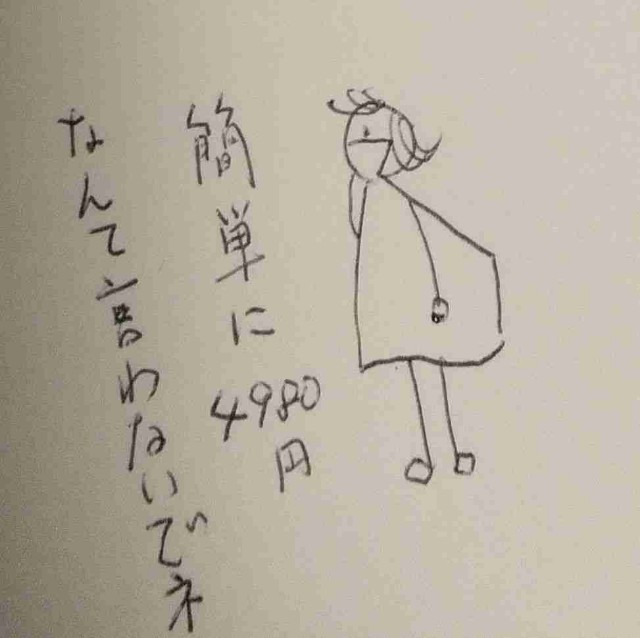 簡単に4980円
なんて言わないでネ